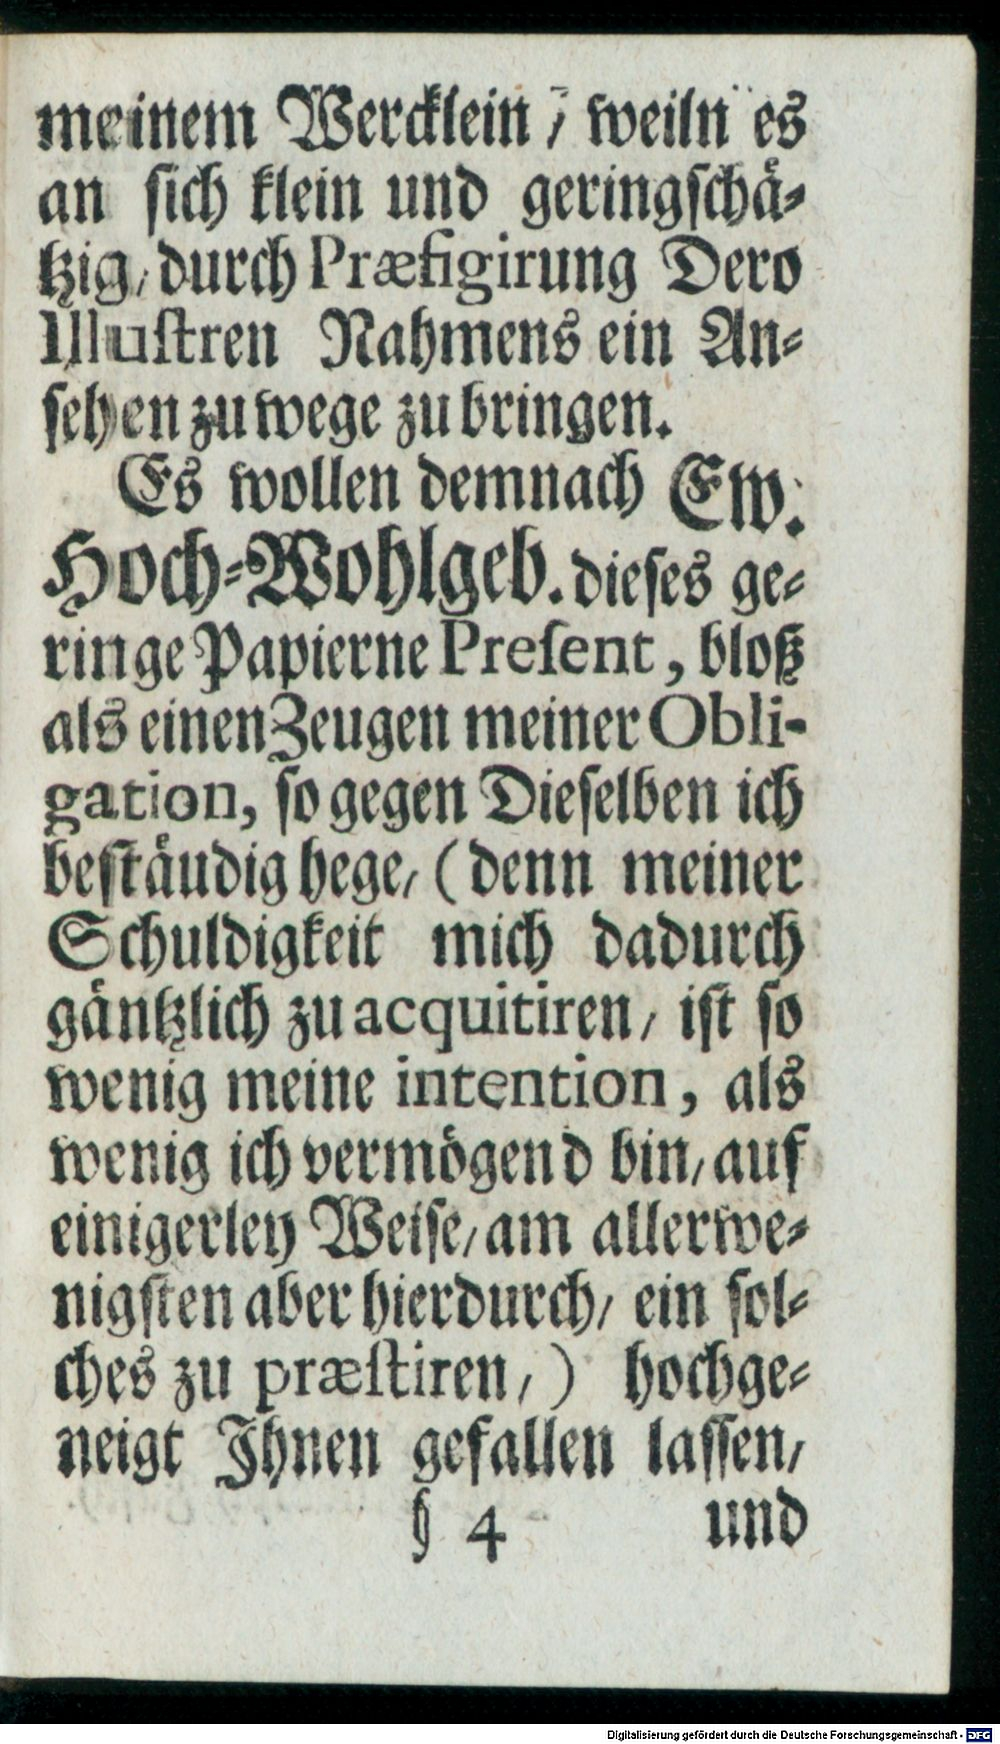 meinem Wercklein / weiln es
an sich klein und geringschä-
tzig / durch Præfigirung Dero
Illustren Nahmens ein An-
sehen zu wege zu bringen.
Es wollen demnach Ew.
Hoch-Wohlgeb. dieses ge-
ringe Papierne Preſent, bloß
als einen Zeugen meiner Obli-
gation, so gegen Dieselben ich
beständig hege / (denn meiner
Schuldigkeit mich dadurch
gäntzlich zu acquitiren / ist so
wenig meine intention, als
wenig ich vermögend bin / auf
einigerley Weise / am allerwe-
nigsten aber hierdurch / ein sol-
ches zu præstiren /) hochge-
neigt Ihnen gefallen lassen /
§ 4 und
Digitalisierung gefördert durch die Deutsche Forschungsgemeinschaft - DFG